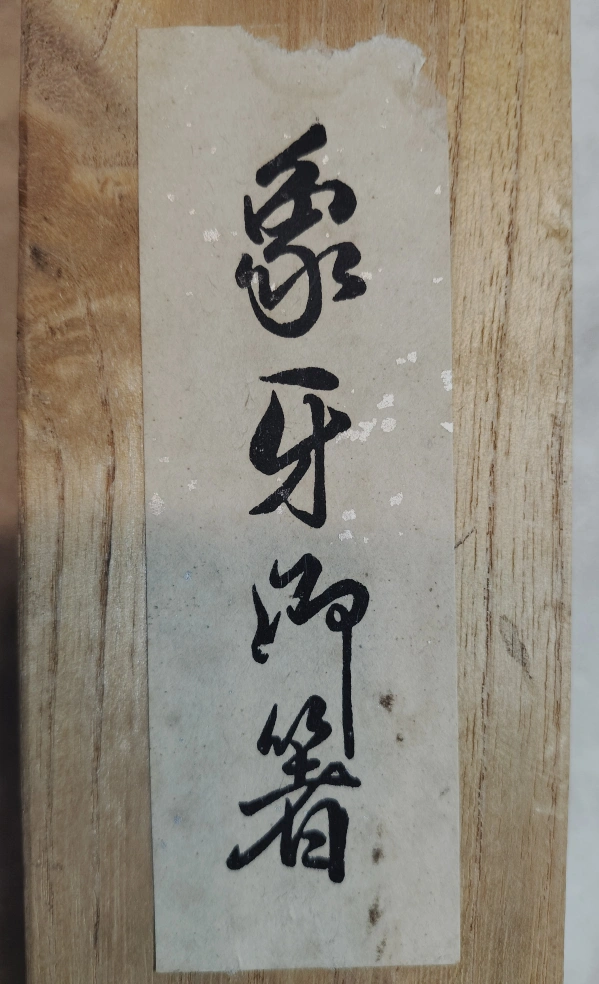 象牙御箸